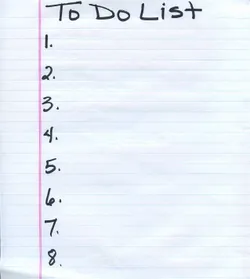 To Do List
1.
2.
3.
4.
5.
6.
7.
8.